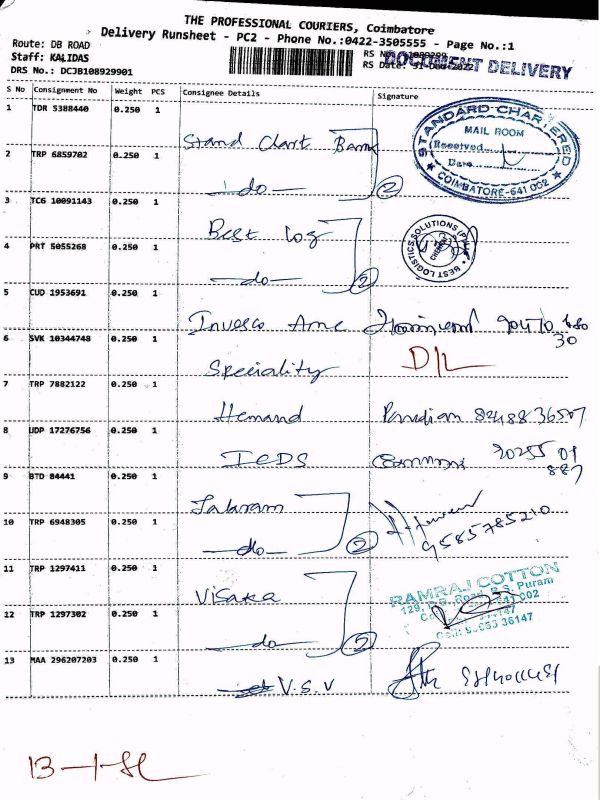 THE PROFESSIONAL COURIERS, Coimbatore
Delivery Runsheet - PC2 - Phone No.:0422-3505555 - Page No.:1
Route: DB ROAD
Staff: KALIDAS
DRS No.: DCJB108929901
RS No
RS Date: 31-Dec-2022
DOCUMENT DELIVERY
S No Consignment No Weight PCS Consignee Details Signature
1 TDR 5388440 0.250 1 Stand Chart Bank
STANDARD CHARTERED
MAIL ROOM
Received
Date
COIMBATORE-641 002
2 TRP 6859702 0.250 1 -do- 2
3 TCG 10091143 0.250 1 Best Log
BEST LOGISTICS SOLUTIONS (P)
4 PRT 5055268 0.250 1 -do- 2
5 CUD 1953691 0.250 1 Invesco Amc
6 SVK 10344748 0.250 1 Speciality D/L
7 TRP 7882122 0.250 1 Hemand
8 UDP 17276756 0.250 1 ICDS
9 BTD 84441 0.250 1
10 TRP 6948305 0.250 1 -do- 2 9585785210
11 TRP 1297411 0.250 1 Visaka
RAMRAJ COTTON
129, D.B. Road, R.S. Puram
12 TRP 1297302 0.250 1 -do- 2
36147
13 MAA 296207203 0.250 1 V.S.V
13-1-